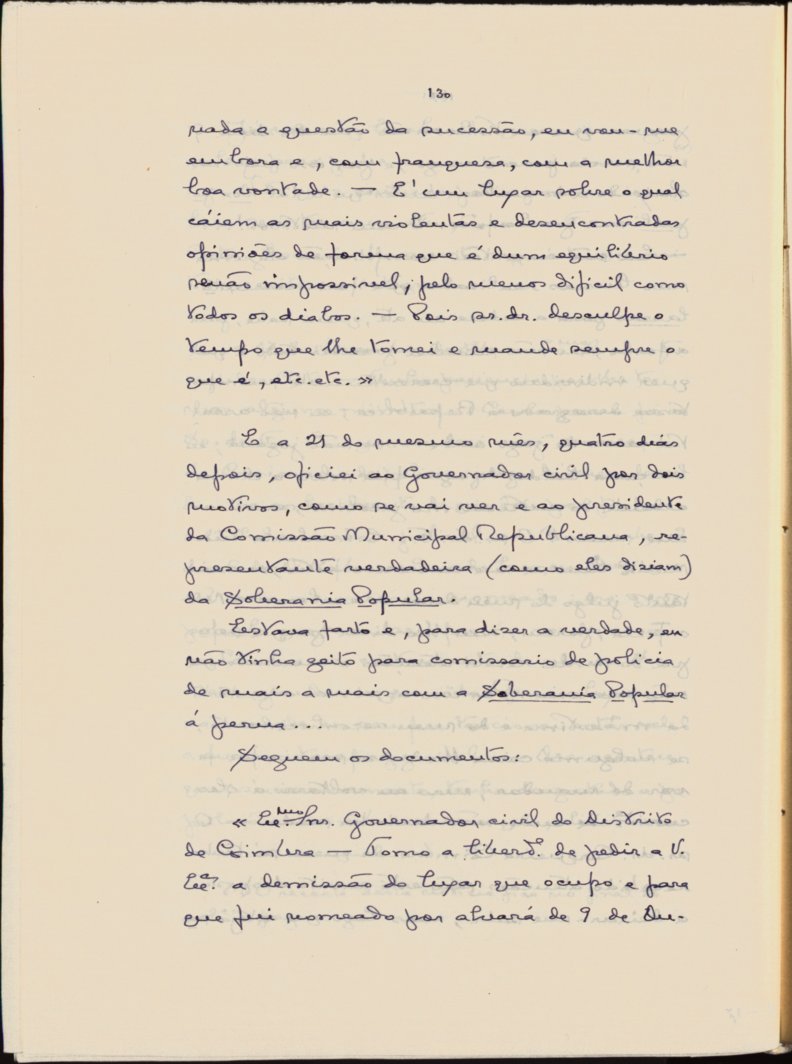 130
nada a questão da sucessão, eu vou-me
embora e, com franquesa, com a melhor
boa vontade. — E' um lugar sobre o qual
cáiem as mais violentas e desencontradas
opiniões de forma que é dum equilibrio
senão impossivel, pelo menos dificil como
todos os diabos. — Pois sr. dr. desculpe o
tempo que lhe tomei e mande sempre o
que é, etc. etc. »
E a 21 do mesmo mês, quatro dias
depois, oficiei ao Governador civil por dois
motivos, como se vai ver e ao presidente
da Comissão Municipal Republicana, re-
presentante verdadeira (como eles diziam)
da Soberania Popular.
Estava farto e, para dizer a verdade, eu
não tinha geito para comissario de policia
de mais a mais com a Soberania Popular
á perna...
Seguem os documentos:
« Ex.mo Snr. Governador civil do Distrito
de Coimbra — Tomo a liberd.e de pedir a V.
Ex.a a demissão do lugar que ocupo e para
que fui nomeado por alvará de 9 de Ou-